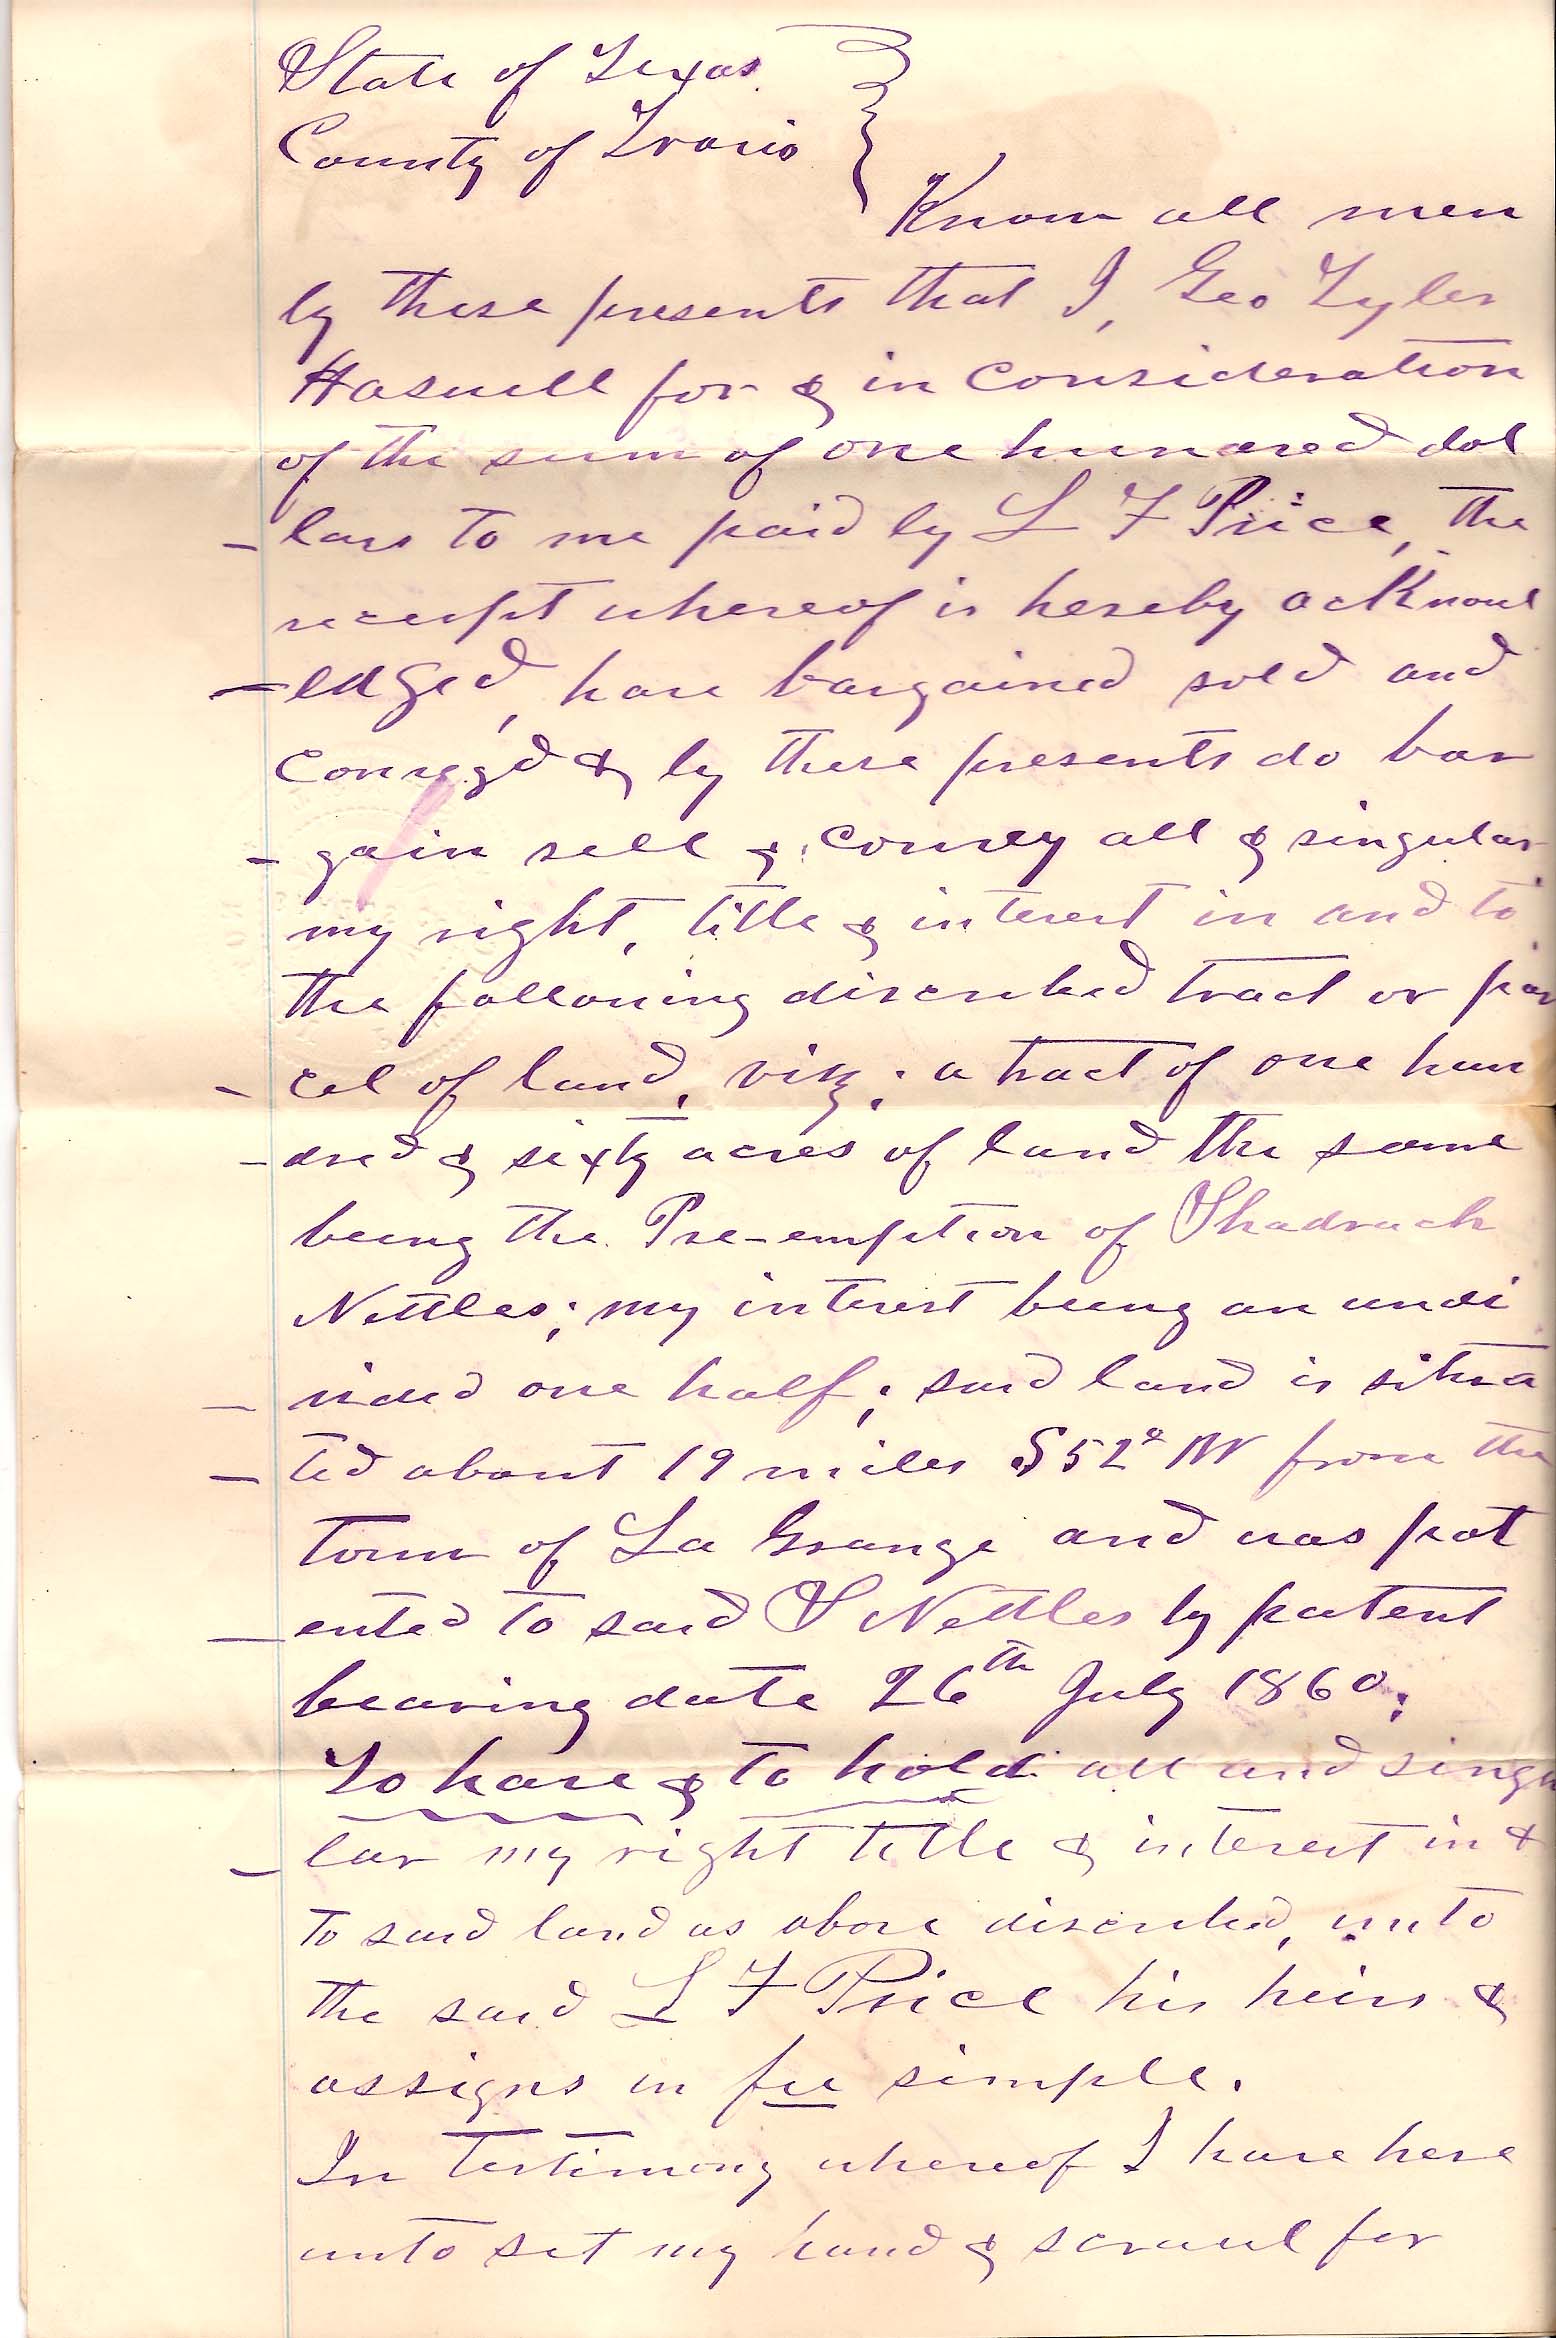 State of Texas
County of Travis
Know all men
by these presents that I, Geo Tyler
Haswell for & in consideration
of the sum of one hundred dol
- lars to me paid by L F Price, the
receipt whereof is hereby acknowl
- edged, have bargained sold and
convey'd & by these presents do bar
- gain sell & convey all & singular
my right, title & interest in and to
the following described tract or par
- cel of land, viz; a tract of one hun
- dred & sixty acres of land the same
being the Pre-emption of Shadrach
Nettles; my interest being an undi
- vided one half; said land is situa
- ted about 19 miles S 52° W from the
town of La Grange and was pat
- ented to said S Nettles by patent
bearing date 26th July 1860;
To have & to hold all and singu
- lar my right title & interest in &
to said land as above described, unto
the said L F Price his heirs &
assigns in fee simple.
In testimony whereof I have here
unto set my hand & scrawl for